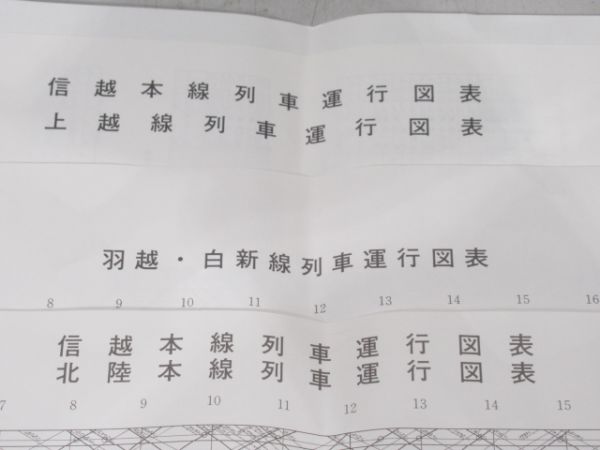 信越本線列車運行図表
上越線列車運行図表
羽越・白新線列車運行図表
8 9 10 11 12 13 14 15 16
信越本線列車運行図表
北陸本線列車運行図表
7 8 9 10 11 12 13 14 15